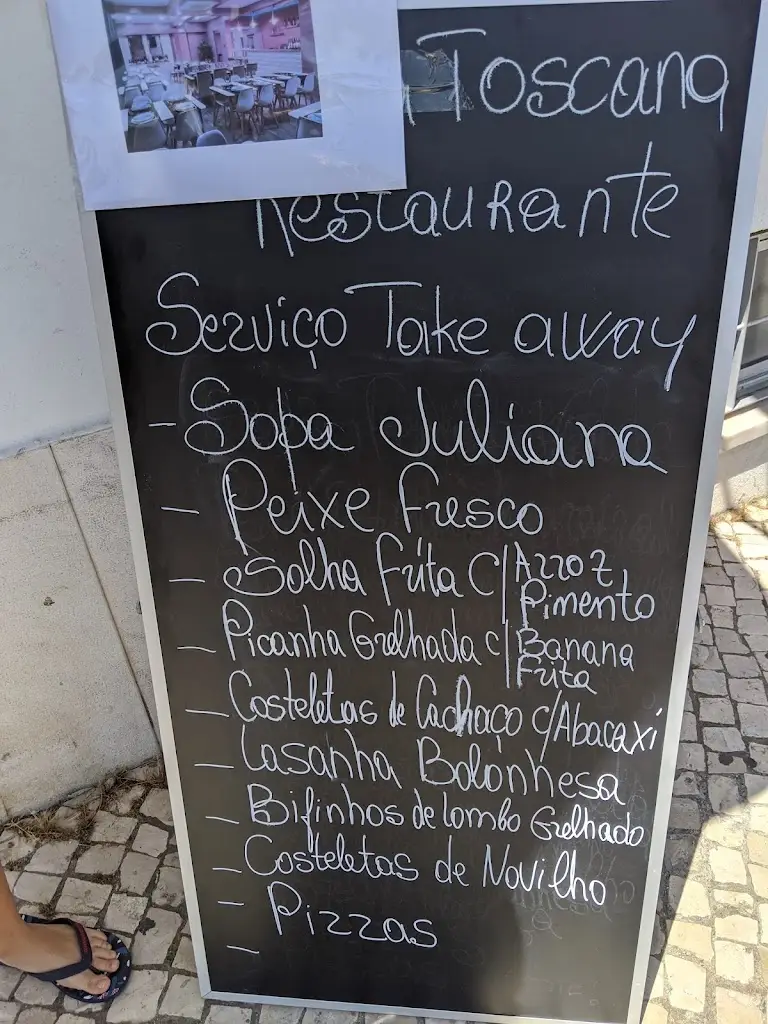 Toscana
Restaurante
Serviço Take away
- Sopa Juliana
- Peixe fresco
- Solha frita c/ Arroz
Pimento
- Picanha Grelhada c/ Banana
frita
- Costeletas de Cachaço c/Abacaxi
- Lasanha Bolonhesa
- Bifinhos de lombo Grelhado
- Costeletas de Novilho
- Pizzas
-